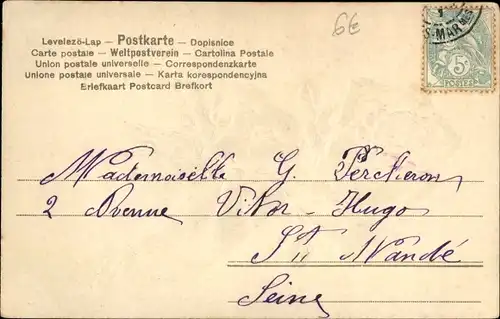 6€
Levelezö-Lap – Postkarte – Dopisnice
Carte postale – Weltpostverein – Cartolina Postale
Union postale universelle – Correspondenzkarte
Unione postale universale – Karta korespondencyjna
Briefkaart Postcard Brefkort
5c
POSTES
MARNE
Mademoiselle G. Percheron
2 Avenue Victor-Hugo
St Mandé
Seine